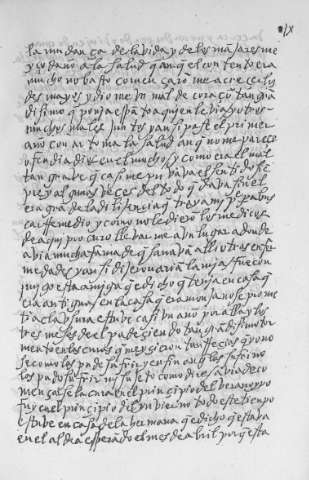 la mudança de la vida y de los manJares me
yço daño a la salud q̃ aunq̃ el contento era
mucho no basto començaronme a creçer los
desmayos y diome un mal de coraçon tan grã
disimo q̃ ponia espãto a quien le via y otros
muchos males Juntos y ansi pase el primer
año con arta mala salud aunq̃ no me pareçe
ofendia a dios en el mucho y como era el mal
tan grave q̃ casi me privava el sentido siẽ
pre y algunas veçes del todo q̃ dava sin el
era grãde la diligençia q̃ traya mi padre para bus
car rremedio y como no le dieron los medicos
de aqui procuro llevarme a un lugar adonde
avia mucha fama de q̃ sanavã alli otras enfer
medades y ansi dijeron aria la mia fue con
migo esta amiga q̃ e dicho q̃ tenia en casa q̃
era antigua en la casa q̃ era monJa no se prome
tia clausura estuve casi un año por alla y los
tres meses de el padeçiendo tan grãdisimo tor
mento en las curas q̃ me yçieron tan rreçias q̃ yo no
se como las pude sufrir y en fin aunq̃ las sufri no
las pudo sufrir mi suJeto como dire avia de co
mençarse la cura en el prinçipio del verano y yo
fuy en el prinçipio del ynvierno todo este tienpo
estuve en casa de la hermana q̃ e dicho q̃ estava
en el aldea esperãdo el mes de abril porq̃ esta